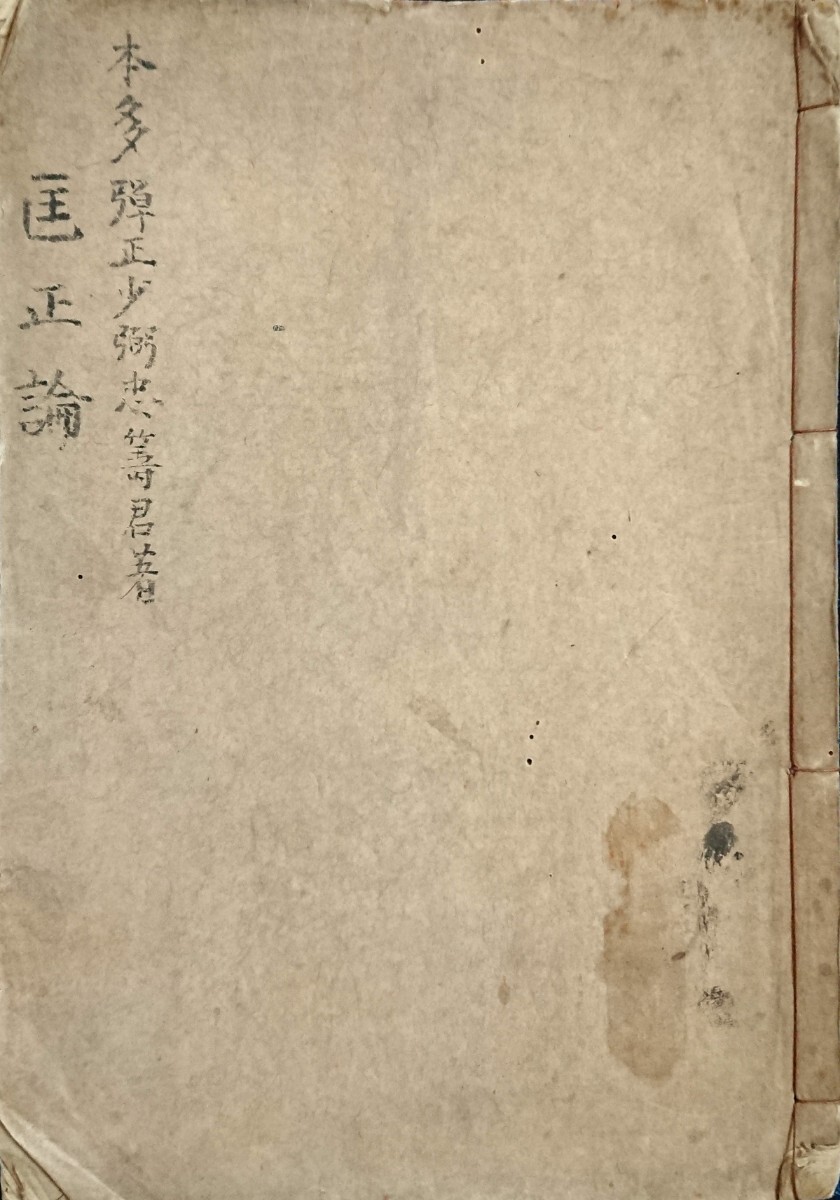 本多彈正少弼忠籌君著
匡正論